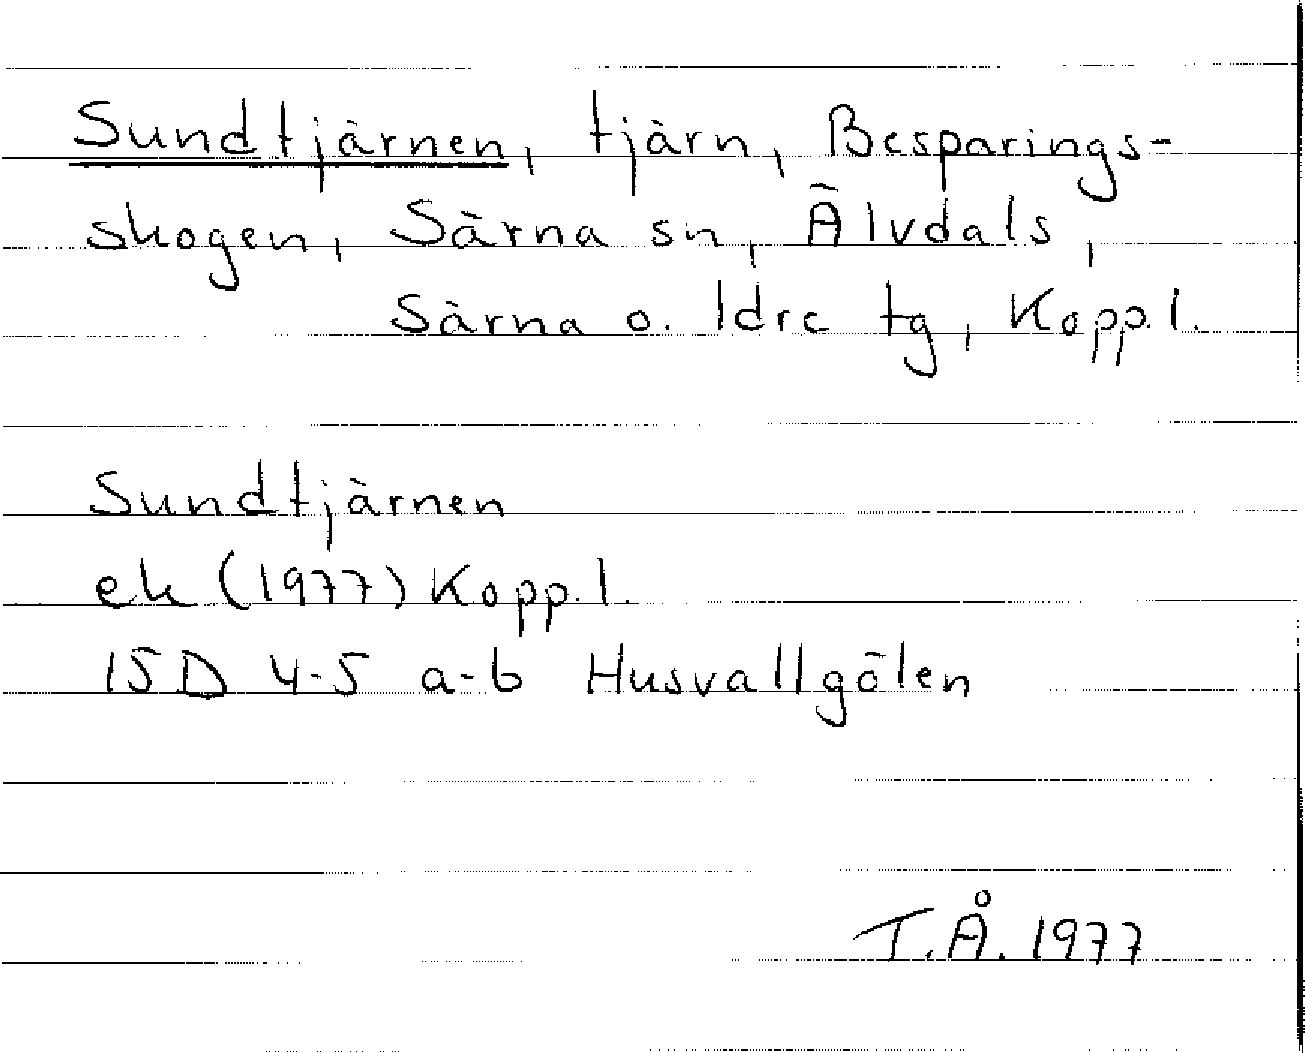 Sundtjärnen, tjärn, Besparings-
skogen, Särna sn, Älvdals,
Särna o. Idre tg, Kopp. l.
Sundtjärnen
ek (1977) Kopp. l.
15D 4-5 a-b Husvallgölen
T.Å. 1977